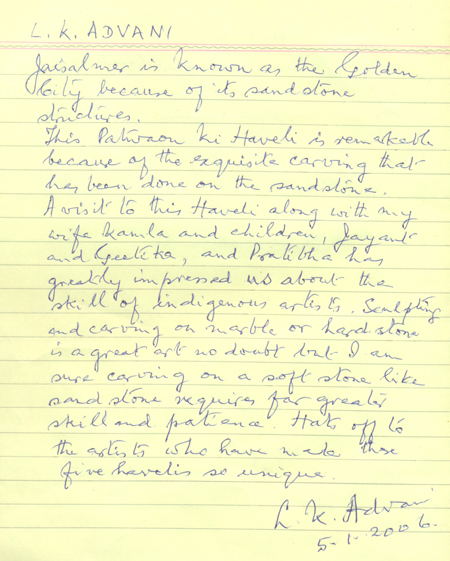 L. K. ADVANI
Jaisalmer is known as the Golden
City because of its sandstone
structures.
This Patwaon Ki Haveli is remarkable
because of the exquisite carving that
has been done on the sandstone.
A visit to this Haveli along with my
wife Kamla and children, Jayant
and Geetika, and Pratibha has
greatly impressed us about the
skill of indigenous artists. Sculpting
and carving on marble or hard stone
is a great art no doubt but I am
sure carving on a soft stone like
sand stone requires far greater
skill and patience. Hats off to
the artists who have made these
five havelis so unique.
L. K. Advani
5-1-2006.